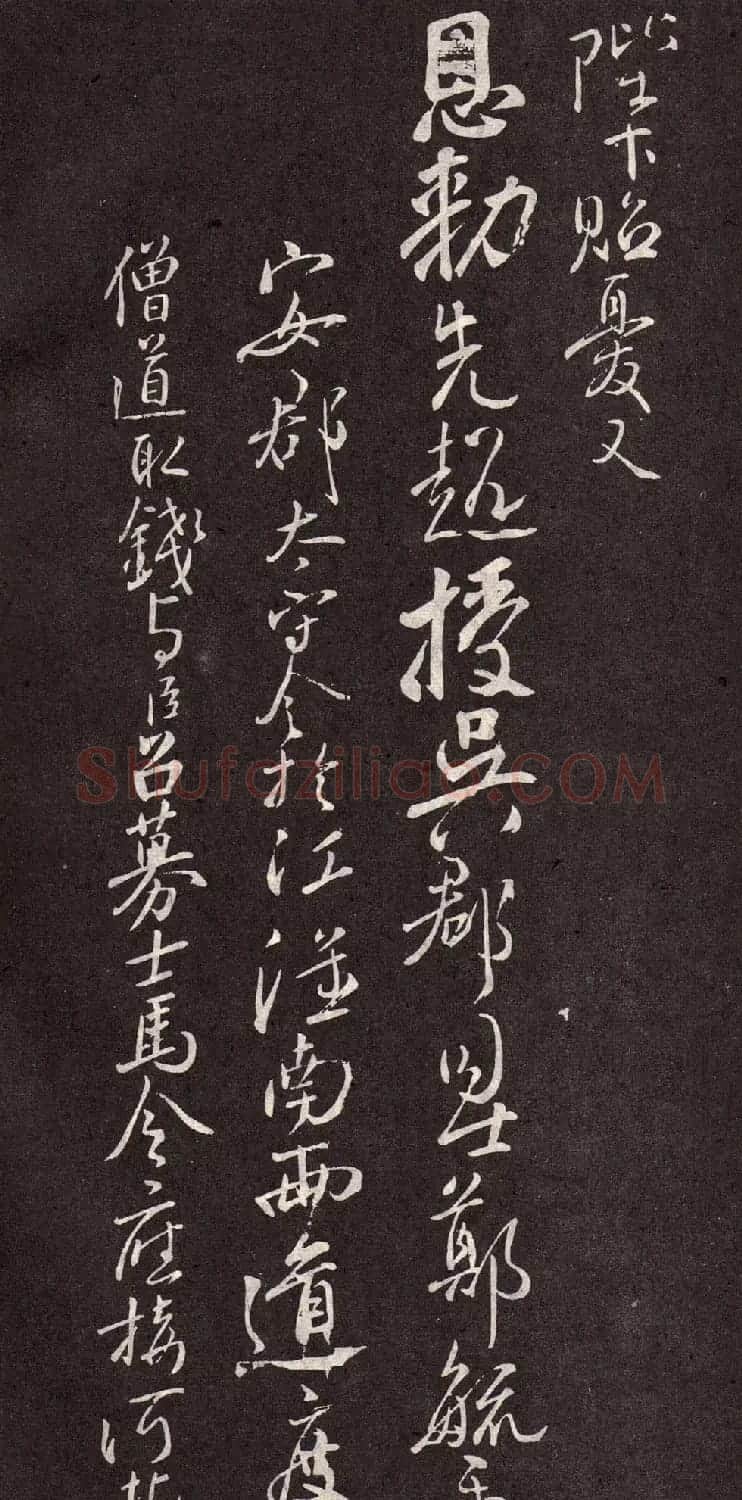 陛下貽憂又
恩勅先超授吳郡司士鄭毓
安郡太守令於江淮南兩道度
僧道取錢与臣召募士馬令應接河
Shufaziliao.COM